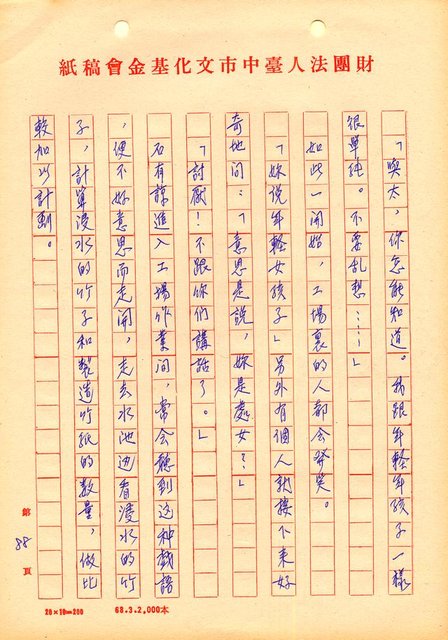 財團法人臺中市文化基金會稿紙
「噢太,你怎能知道。我跟年輕年孩子一樣
很單純。不要乱想……」
如此一開始,工場裏的人都会發笑。
「妳說年輕女孩子」另外有個人就接下來好
奇地问:「意思是說,妳是處女?」
「討厭!不跟你們講話了。」
石有諒進入工場作業间,當会聽到这种戲語
,便不好意思而走開,走去水池边看浸水的竹
子,計算浸水的竹子和製造竹紙的数量,做比
較加以計劃。
第88頁
20×10=200
68.3.2,000本